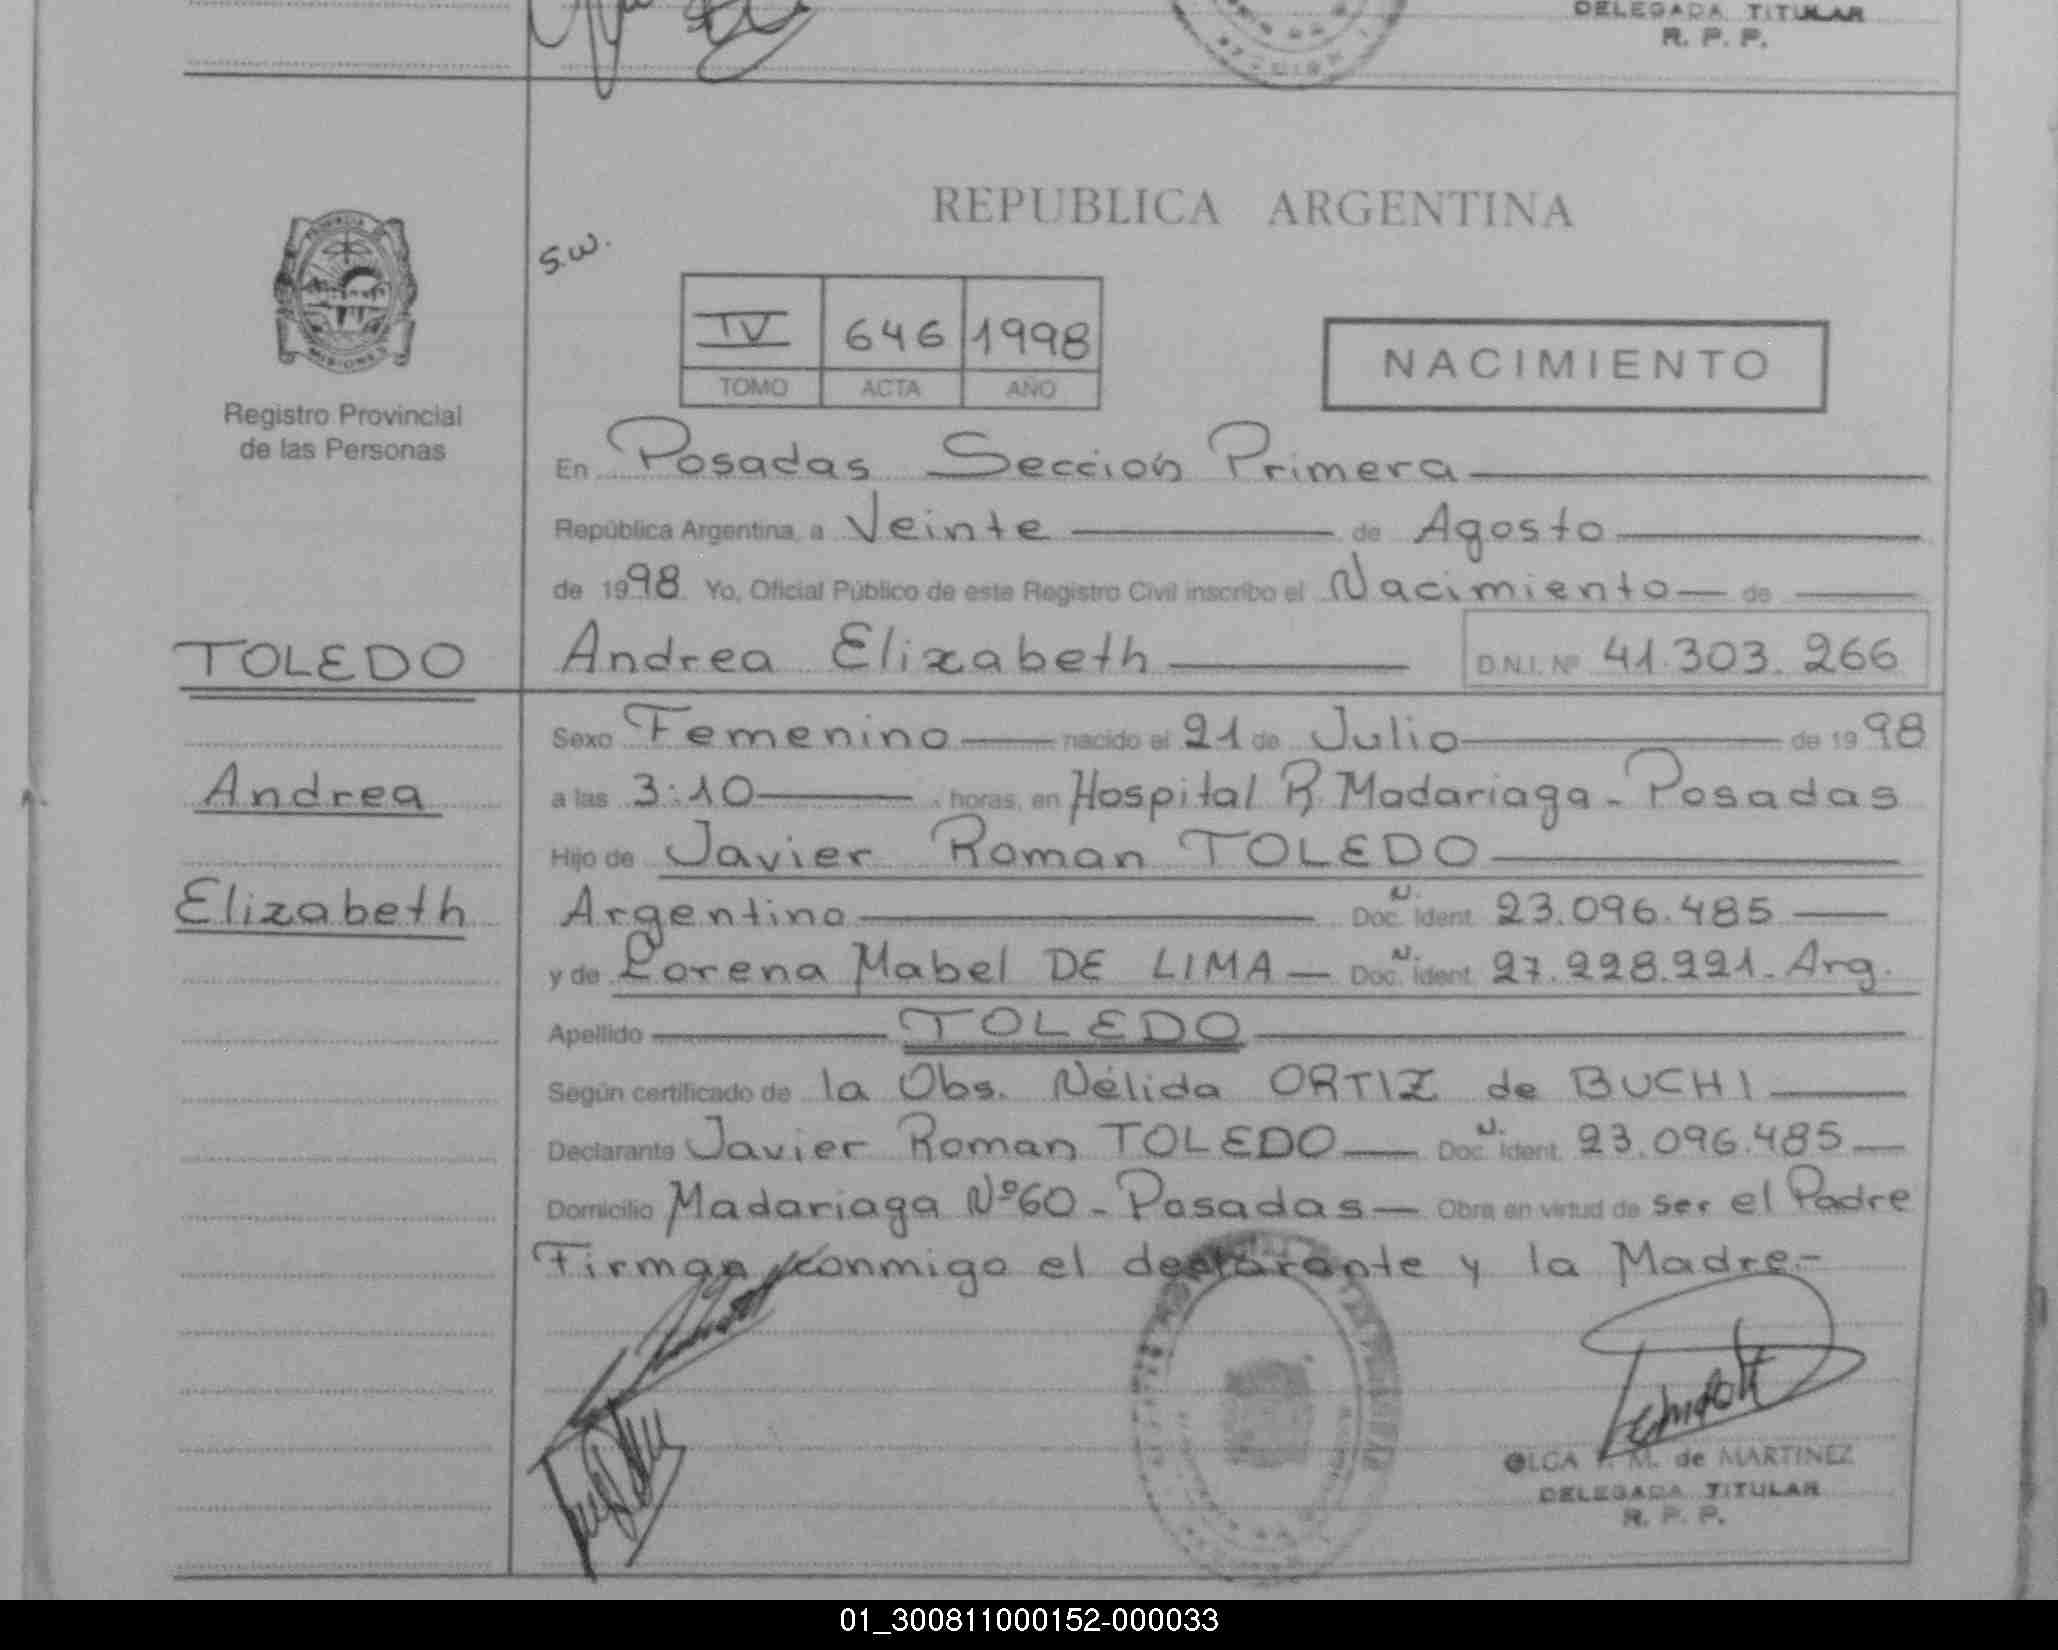 DELEGADA TITULAR
R. P. P.
REPUBLICA ARGENTINA
s.w.
MISIONES
Registro Provincial
de las Personas
IV 646 1998
TOMO ACTA AÑO
NACIMIENTO
En Posadas Sección Primera
República Argentina, a Veinte de Agosto
de 1998 Yo, Oficial Público de este Registro Civil inscribo el Nacimiento de
TOLEDO Andrea Elizabeth D.N.I. Nº 41.303.266
Sexo Femenino nacido el 21 de Julio de 1998
Andrea a las 3:10 horas, en Hospital R. Madariaga - Posadas
Hijo de Javier Roman TOLEDO
Elizabeth Argentino Doc. N. Ident. 23.096.485
y de Lorena Mabel DE LIMA Doc. N. Ident. 27.228.221. Arg.
Apellido TOLEDO
Según certificado de la Obs. Nélida ORTIZ de BUCHI
Declarante Javier Roman TOLEDO Doc. N. Ident. 23.096.485
Domicilio Madariaga Nº60 - Posadas Obra en virtud de ser el Padre
Firman conmigo el declarante y la Madre.-
OLGA M. de MARTINEZ
DELEGADA TITULAR
R. P. P.
01_300811000152-000033